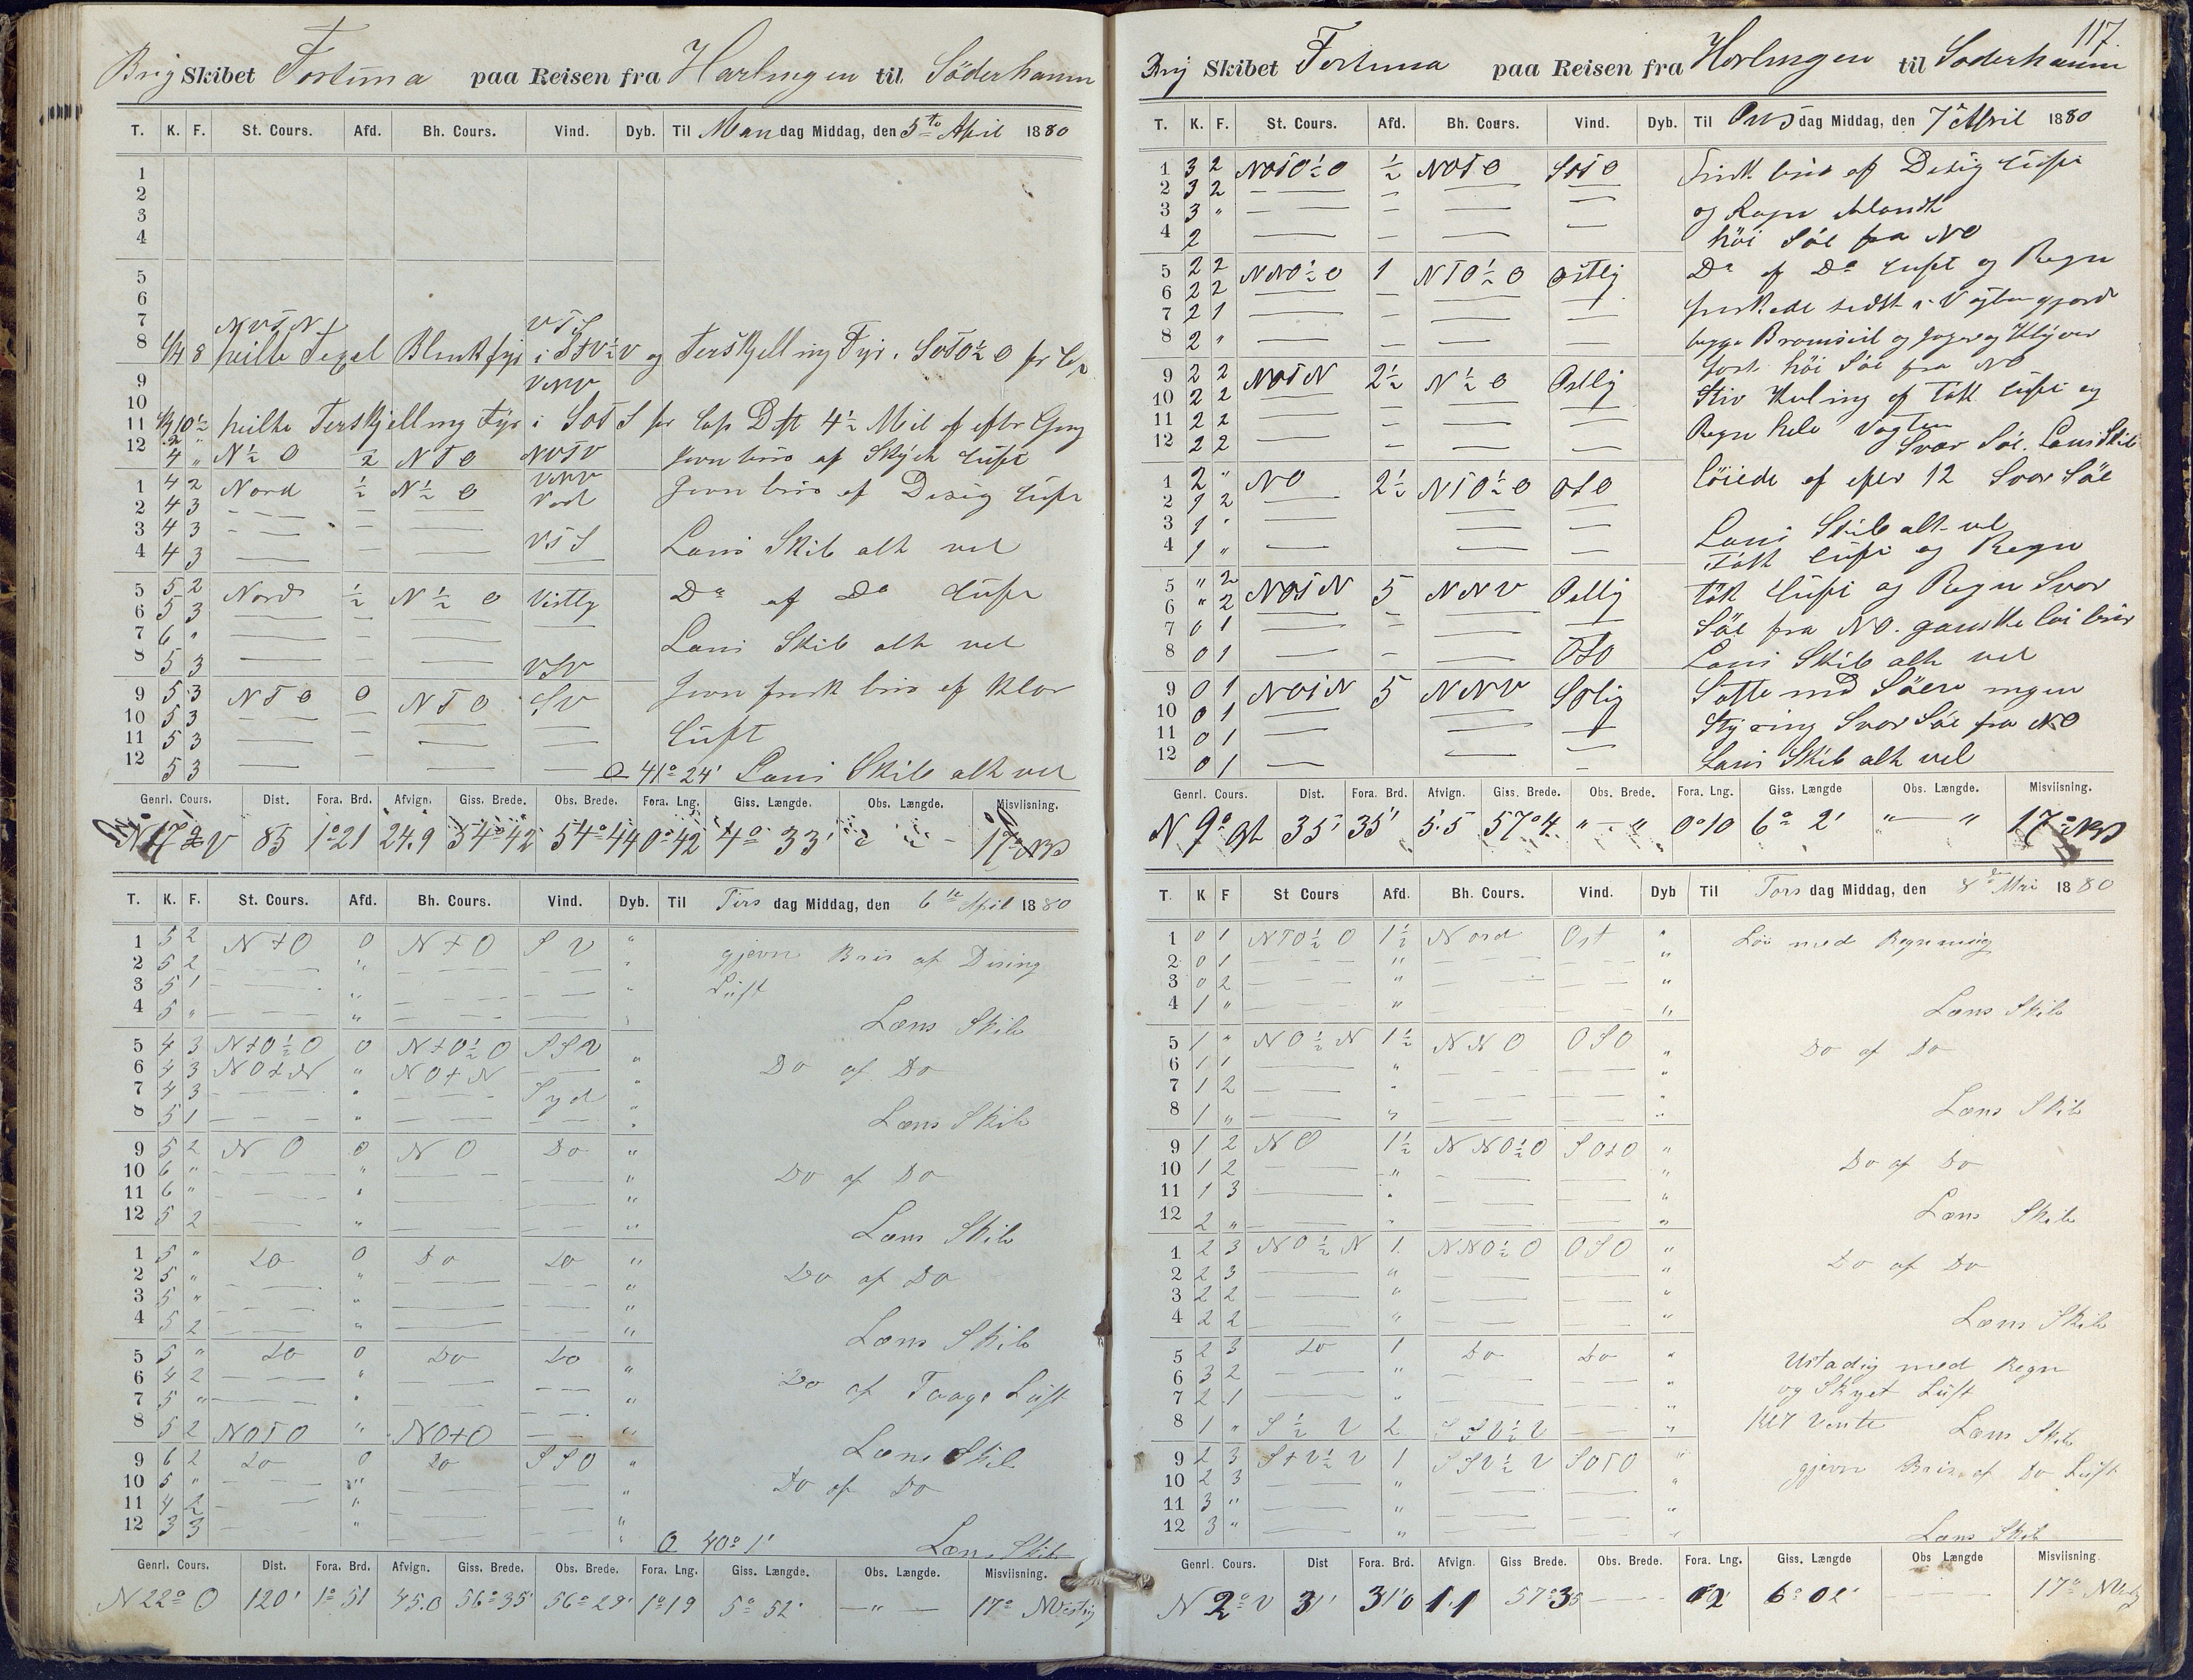 Brig Skibet Fortuna paa Reisen fra Harlingen til Söderhamn
T. K. F. St. Cours. Afd. Bh. Cours. Vind. Dyb. Til Mandag Middag, den 5te April 1880
1
2
3
4
5
6
7 NOTN VTS
8 peilte Texel Blinkfyr i STV½V og Terskjelling Fyr. SOTO½O pr
9 VNV
10
11 peilte Terskjelling Fyr i SOTS pr Cps Dst 4½ Mil
12 4 " N½O ½ NTO NVTV Jevn bris af Skyet Luft
VNV
1 4 2 Nord ½ N½O Vest Jevn bris af Disig Luft
2 4 3 — — — —
3 4 3 — — — VTS Læns Skib alt vel
4 4 3 — — — —
5 5 2 Nord ½ N½O Vestlig Do af Do Luft
6 5 3 — — — —
7 6 " — — — Læns Skib alt vel
8 5 3 — — — VSV
9 5 3 NTO 0 NTO SV Jevn frisk bris af Klar
10 5 3 — — — —
11 5 3 — — — — Luft
12 5 3 — — — — 41° 24' Læns Skib alt vel
Genrl. Cours. Dist. Fora. Brd. Afvign. Giss. Brede. Obs. Brede. Fora. Lng. Giss. Længde. Obs. Længde. Misviisning.
N 17° V 85 1°21 24.9 54°42 54°44 0°42 4° 33' 17°
T. K. F. St. Cours. Afd. Bh. Cours. Vind. Dyb. Til Tirsdag Middag, den 6te April 1880
1 5 2 N+O 0 N+O SV " gjevn Bris af Dising
2 5 2 — " — — "
3 5 1 — " — — " Luft
4 5 " — " — — " Læns Skib
5 4 3 N+O½O 0 N+O½O SSV
6 4 3 NO+N " NO+N — " Do af Do
7 4 3 — " — Syd "
8 5 1 — " — — " Læns Skib
9 5 2 NO 0 NO Do "
10 6 " — " — — " Do af Do
11 6 " — " — — "
12 5 2 — " — — " Læns Skib
1 5 " Do 0 Do Do "
2 5 " — " — — " Do af Do
3 5 " — " — — "
4 5 2 — " — — " Læns Skib
5 5 " Do 0 Do Do "
6 4 2 — " — — " Do af Taage Luft
7 5 " — " — — "
8 5 2 NOTO " NO+O — " Læns Skib
9 6 2 Do 0 Do SSO "
10 5 " — " — — " Do af Do
11 4 2 — " — — "
12 3 3 — " — — " 40° 1' Læns Skib
Genrl. Cours. Dist. Fora. Brd. Afvign. Giss. Brede. Obs. Brede. Fora. Lng. Giss. Længde. Obs. Længde. Misviisning.
N 22° O 120' 1° 51 45.0 56° 35' 56° 29' 1°19 5° 52' — " — 17° NVestlig
117.
Brig Skibet Fortuna paa Reisen fra Harlingen til Söderhamn
T. K. F. St. Cours. Afd. Bh. Cours. Vind. Dyb. Til Onsdag Middag, den 7de April 1880
1 3 2 NOTO½O ½ NOTO SOTO Frisk bris af Disig Luft
2 3 2 — — — —
3 3 " — — — — og Regn
4 2 — — — — höi Söe fra NO
5 2 2 NNO½O 1 NTO½O Østlig Do af Do Luft og Regn
6 2 2 — — — —
7 2 1 — — — —
8 2 " — — — — begge Bramseil og Jager og Klyver
fast höi Söe fra NO
9 2 2 NOTN 2½ N½O Ostlig Stiv Kuling af Tök Luft og
10 2 2 — — — —
11 2 2 — — — — Regn hele Vagten
12 2 2 — — — — Svær Söe. Læns Skib
1 2 " NO 2½ NTO½O OSO Löiede af efter 12 Svær Söe
2 1 2 — — —
3 1 " — — Læns Skib alt vel
4 1 " — — — Tök Luft og Regn
5 " 2 NOTN 5 NNV Ostlig Tök Luft og Regn Svær
6 " 2 — — — —
7 0 1 — — — — Söe fra NO. ganske löi bris
8 0 1 — — — OSO Læns Skib alt vel
9 0 1 NOTN 5 NNV SOlig Satte med Söen ingen
10 0 1 — — —
11 0 1 — — — Styring Svær Söe fra NO
12 0 1 — — — Læns Skib alt vel
Genrl. Cours. Dist. Fora. Brd. Afvign. Giss. Brede. Obs. Brede. Fora. Lng. Giss. Længde Obs. Længde. Misviisning.
N 9° Ost 35' 35' 5.5 57°4 " — " 0°10 6° 2' " — " 17°
T. K F St Cours Afd. Bh. Cours. Vind. Dyb Til Torsdag Middag, den 8de 1880
1 0 1 NTO½O 1½ Nord Ost " Löi med Regnveir
2 0 1 — " — — "
3 0 2 — " — — "
4 1 " — " — — " Læns Skib
5 1 " NO½N 1½ NNO OSO " Do af Do
6 1 1 — " — — "
7 1 2 — " — — "
8 1 " — " — — " Læns Skib
9 1 2 NO 1½ NNO½O SO+O " Do af Do
10 1 2 — " — — "
11 1 3 — " — — "
12 2 " — " — — " Læns Skib
1 2 3 NO½N 1. NNO½O OSO " Do af Do
2 2 3 — " — — "
3 2 2 — " — — "
4 2 2 — " — — " Læns Skib
5 2 3 Do 1 Do Do " Ustadig med Regn
6 3 2 — " — — " og Skyet Luft
7 2 1 — " — — "
8 1 " S½V 2 SSV½V — " Kl 7 Vente Læns Skib
9 2 3 S+V½V 1 SSV½V SOTO " gjevn Bris af Do Luft
10 2 3 — " — — "
11 3 " — " — — "
12 3 " — " — — " Læns Skib
Genrl. Cours. Dist Fora. Brd. Afvign. Giss Brede. Obs. Brede. Fora. Lng. Giss. Længde Obs Længde Misviisning.
N 2° V 31' 31'0 1.1 57°35 — 02' 6° 02' — 17° NVestlig